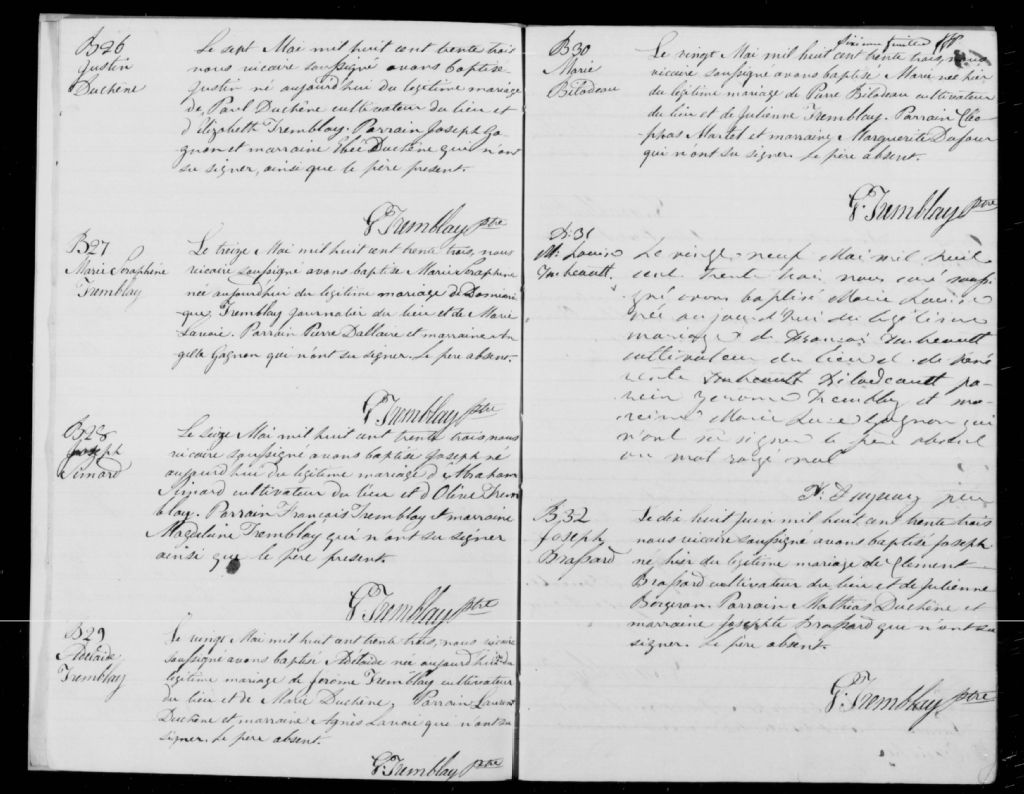 B26
Justin
Duchêne
Le sept Mai mil huit cent trente trois
nous vicaire soussigné avons baptisé
Justin né aujourd'hui du légitime mariage
de Paul Duchêne cultivateur du lieu et
d'Elizabeth Tremblay. Parrain Joseph Ga-
gnon et marraine Duchêne qui n'ont
su signer, ainsi que le père present.
G. Tremblay ptre
B27
Marie Seraphine
Tremblay
Le treize Mai mil huit cent trente trois, nous
vicaire soussigné avons baptisé Marie Seraphine
née aujourd'hui du légitime mariage de Domini
que Tremblay journalier du lieu et de Marie
Lavoie. Parrain Pierre Dallaire et marraine An
gelle Gagnon qui n'ont su signer. Le père absent.
G. Tremblay ptre
B28
Joseph
Simard
Le seize Mai mil huit cent trente trois, nous
vicaire soussigné avons baptisé Joseph né
aujourd'hui du légitime mariage d'Abraham
Simard cultivateur du lieu et d'Olive Trem
blay. Parrain François Tremblay et marraine
Magdeleine Tremblay qui n'ont su signer
ainsi que le père present.
G. Tremblay ptre
B29
Adélaide
Tremblay
Le vingt Mai mil huit cent trente trois, nous vicaire
soussigné avons baptisé Adélaide née aujourd'hui du
légitime mariage de Jérôme Tremblay cultivateur
du lieu et de Marie Duchêne, Parrain Laurent
Duchêne et marraine Agnès Lavoie qui n'ont su
signer. Le père absent.
G. Tremblay ptre
Sixième feuillet
B30
Marie
Bilodeau
Le vingt Mai mil huit cent trente trois, nous
vicaire soussigné avons baptisé Marie née hier
du légitime mariage de Pierre Bilodeau cultivateur
du lieu et de Julienne Tremblay. Parrain Cléo
phas Martel et marraine Marguerite Dufour
qui n'ont su signer. Le père absent.
G. Tremblay ptre
B. 31
M. Louise
Imbeault.
Le vingt-neuf Mai mil huit
cent trente trois nous curé soussi
gné avons baptisé Marie Louise
née aujourd'hui du légitime
mariage de François Imbeault
cultivateur du lieu et de
Imbeault Bilodeault pa-
rein Jerome Tremblay et ma-
reine Marie Gagnon qui
n'ont su signer le père absent
un mot rayé nul
B. 32
Joseph
Brassard
Le dix huit Juin mil huit cent trente trois
nous vicaire soussigné avons baptisé Joseph
né hier du légitime mariage de Clement
Brassard cultivateur du lieu et de Julienne
Bergeron. Parrain Mathias Duchêne et
marraine Josephte Brassard qui n'ont su
signer. Le père absent.
G. Tremblay ptre